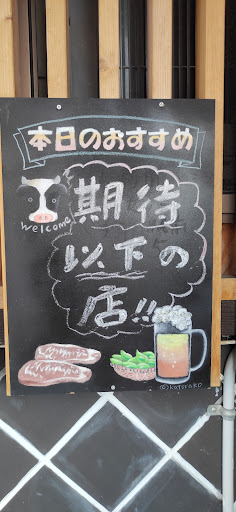 本日のおすすめ
welcome
期待
以下の
店!!